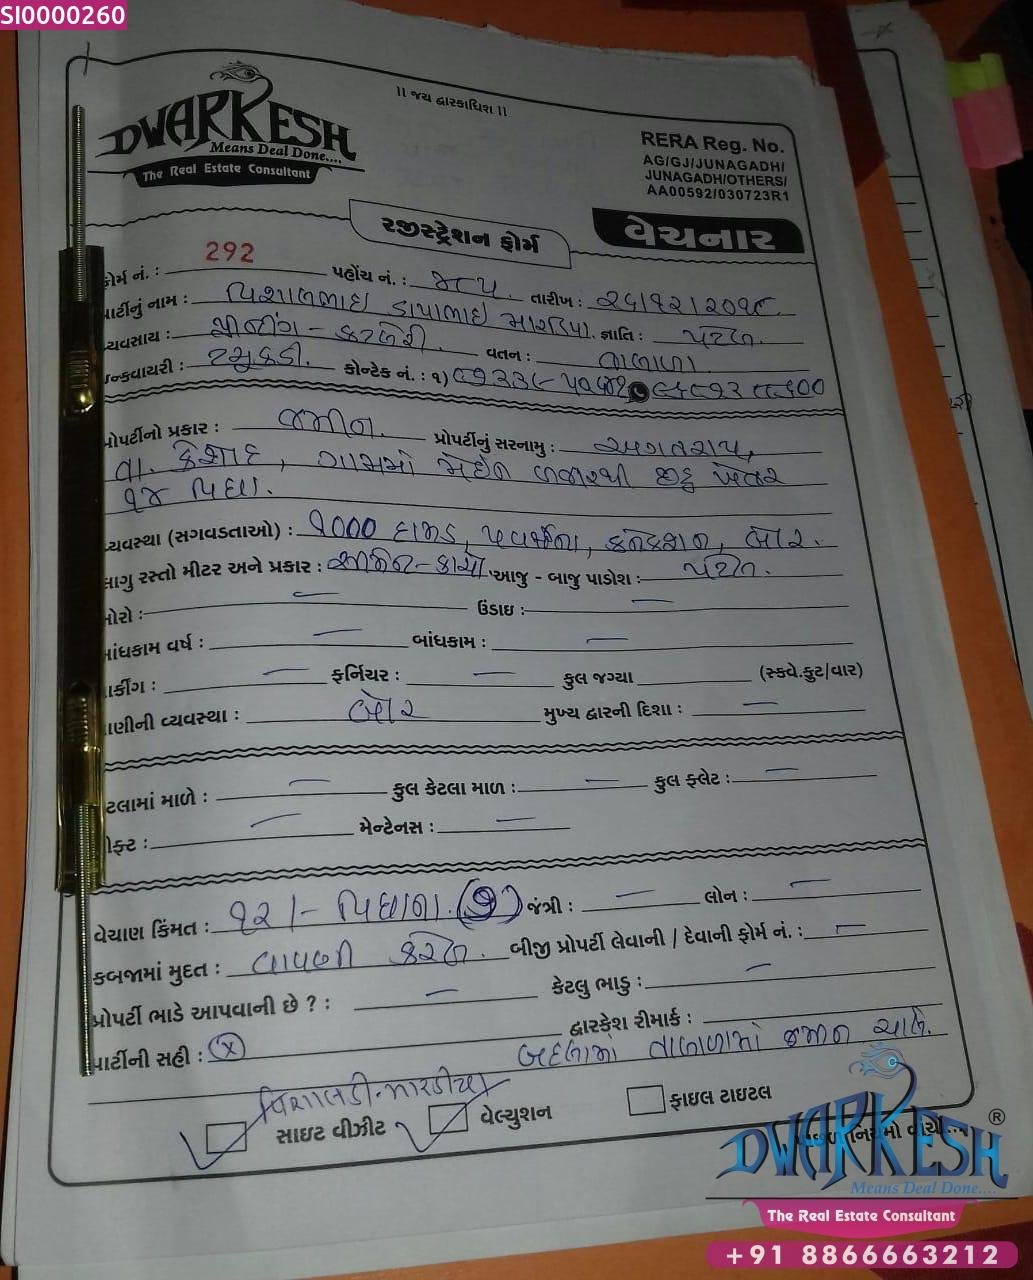 SI0000260
|| જય દ્વારકાધિશ ||
DWARKESH
Means Deal Done....
The Real Estate Consultant
RERA Reg. No.
AG/GJ/JUNAGADH/
JUNAGADH/OTHERS/
AA00592/030723R1
રજીસ્ટ્રેશન ફોર્મ
વેચનાર
ફોર્મ નં. : 292 પહોંચ નં. : તારીખ :
પાર્ટીનું નામ : વિશાલભાઇ ડાયાભાઇ મારડિયા. જ્ઞાતિ : પટેલ.
વ્યવસાય : વતન : તાલાળા.
ઇન્કવાયરી : ટમુકડી. કોન્ટેક નં. : ૧)
પ્રોપર્ટીનો પ્રકાર : જમીન. પ્રોપર્ટીનું સરનામુ : અગતરાય,
તા. કેશોદ, ગામમાં મેઇન બજારથી ખેતર
૧૪ વિઘા.
વ્યવસ્થા (સગવડતાઓ) : કનેકશન, બોર.
લાગુ રસ્તો મીટર અને પ્રકાર : આજુ - બાજુ પાડોશ : પટેલ.
મોરો : — ઉંડાઇ : —
બાંધકામ વર્ષ : — બાંધકામ : —
પાર્કીંગ : — ફર્નિચર : — કુલ જગ્યા (સ્કવે.ફુટ/વાર)
પાણીની વ્યવસ્થા : બોર મુખ્ય દ્વારની દિશા : —
કેટલામાં માળે : — કુલ કેટલા માળ : — કુલ ફ્લેટ : —
લીફ્ટ : — મેન્ટેનસ : —
વેચાણ કિંમત : ૧૨/- વિઘાના. જંત્રી : — લોન : —
કબજામાં મુદત : બીજી પ્રોપર્ટી લેવાની / દેવાની ફોર્મ નં. : —
પ્રોપર્ટી ભાડે આપવાની છે ? : — કેટલુ ભાડુ : —
પાર્ટીની સહી : (x) દ્વારકેશ રીમાર્ક :
બદલામાં તાલાળામાં જમીન ચાલે.
વિશાલ ડી. મારડીયા
સાઇટ વીઝીટ વેલ્યુશન ફાઇલ ટાઇટલ
પાછળ નિયમો વાંચો...
DWARKESH ®
Means Deal Done....
The Real Estate Consultant
+91 8866663212